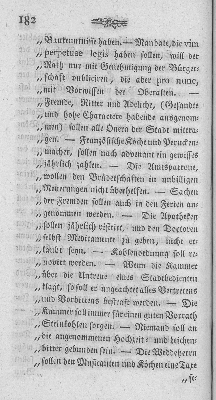 182
„Bankenntnisse haben. — Mandate, die vim
„perpetuae legis haben sollen, will der
„Rath nur mit Genehmigung der Bürger
„schaft publiciren, die aber pro nunc,
„mit Vorwissen der Oberalten. —
„Fremde, Ritter und Adeliche, (Gesandte
„und hohe Characters habende ausgenom-
„men) sollen alle Onera der Stadt mittra-
„gen. — Französische Köche und Perucken-
„macher, sollen nach advenant ein gewisses
„jährlich zahlen. — Die Amtspatrone,
„wollen den Brüderschaften in unbilligen
„Neuerungen nicht überhelfen. — Sachen
„der Fremden sollen auch in den Ferien an-
„genommen werden. — Die Apotheken
„sollen jährlich visitirt, und den Doctoren
„selbst Medicamente zu geben, nicht er-
„laubt seyn. — Kohlenordnung soll re-
„novirt werden. — Wenn die Kammer
„über die Untreue eines Stadtbedienten
„klagt, so soll er ungeachtet alles Vertretens
„und Vorbittens bestraft werden. — Die
„Kammer soll immer für einen guten Vorrath
„Steinkohlen sorgen. — Niemand soll an
„die angenommenen Hochzeit- und Leichen-
„bitter gebunden seyn. — Die Weddeherren
„sollen den Musicanten und Köchen eine Taxe
„se-